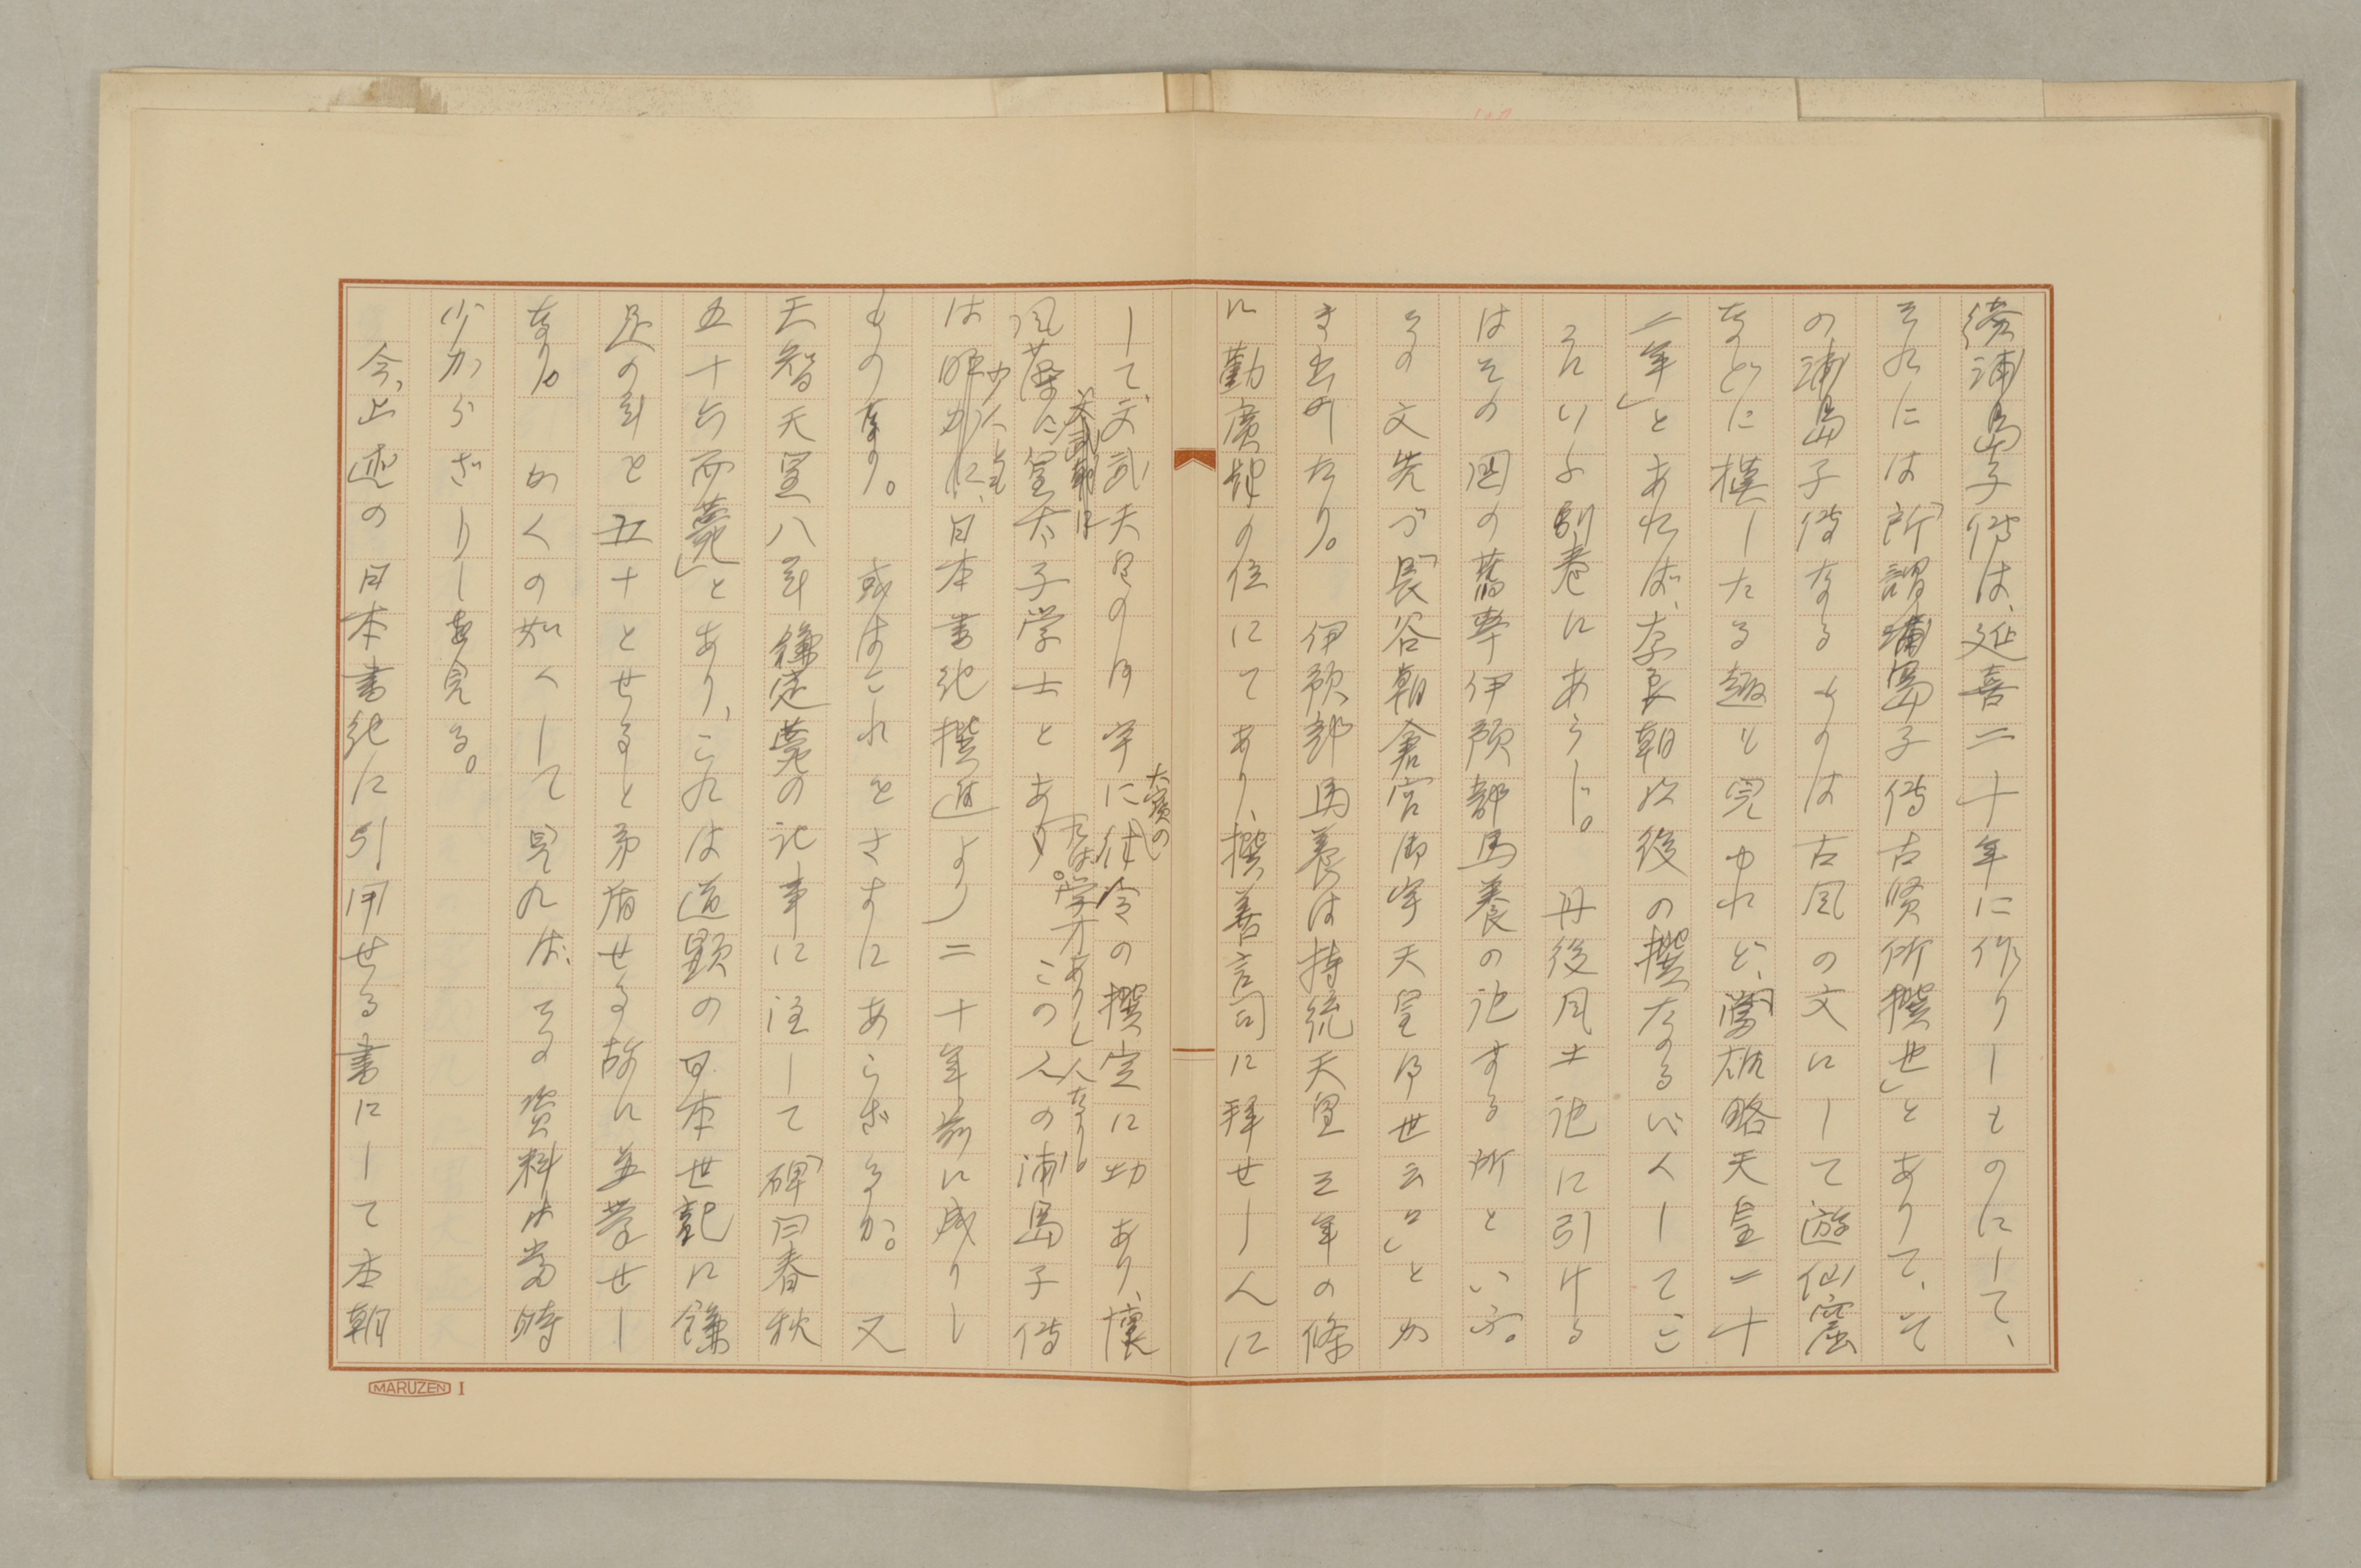 続浦島子伝は、延喜二十年に作りしものにして、
それには「所謂浦島子傳古賢所撰也」とありて、そ
の浦島子傳なるものは古風の文にして遊仙窟
などに模したる趣も見ゆれど、「當雄略天皇二十
二年」とあれば、奈良朝以後の撰なるべくしてこ
ゝにいふ別巻にあらじ。丹後風土記に引ける
はその国の旧宰伊預部馬養の記する所といふ。
その文先づ「長谷朝倉宮御宇天皇御世云々」とか
き出せり。伊預部馬養は持統天皇三年の條
に勤廣肆の位にてあり、撰善言司に拝せし人に
して文武天皇の御宇に大寶の律令の撰定に功あり、懐
風藻に皇太子学士とあれば学才ありし人なり。この人の浦島子傳
は少くも日本書紀撰進より二十年前に成りし
ものなり。或はこれをさすにあらざるか。又
天智天皇八年鎌足薨の記事に注して「碑曰春秋
五十六而薨」とあり、これは道顕の日本世記に鎌
足の年を五十とせると矛盾せる故に並挙せし
なり。かくの如くして見れば、その資料は当時
少からざりしを見る。
今、上述の日本書紀に引用せる書にして本朝
MARUZEN I